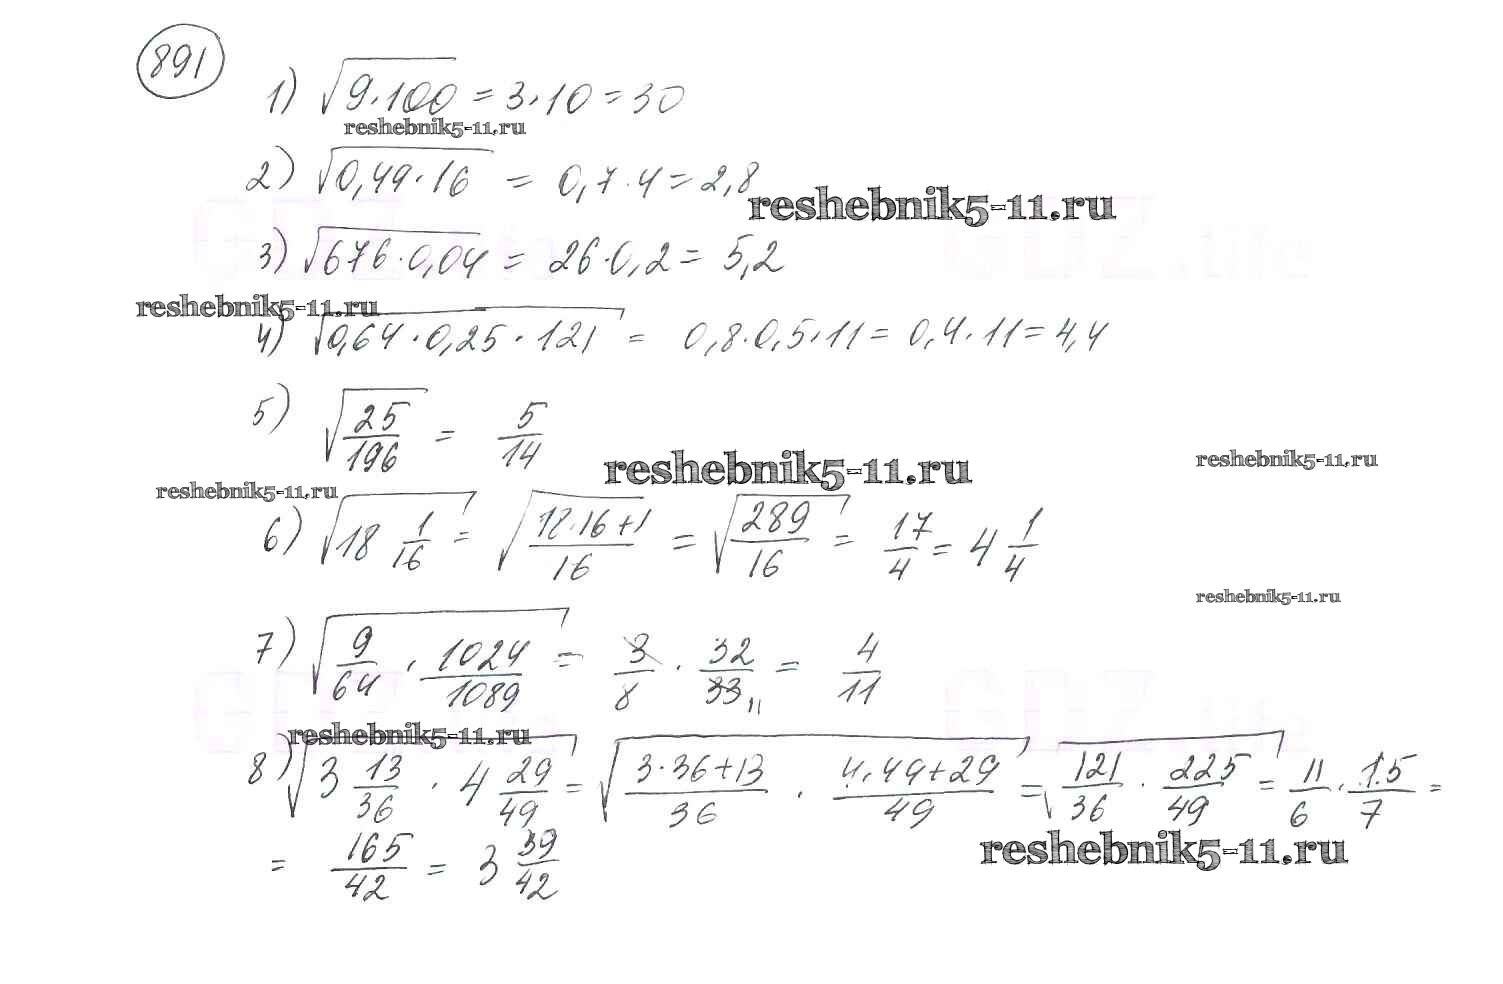 891
1) √9·100 = 3·10 = 30
reshebnik5-11.ru
2) √0,49·16 = 0,7·4 = 2,8
reshebnik5-11.ru
GDZ.life GDZ.life
3) √676·0,04 = 26·0,2 = 5,2
reshebnik5-11.ru
4) √0,64·0,25·121 = 0,8·0,5·11 = 0,4·11 = 4,4
5) √25/196 = 5/14
reshebnik5-11.ru reshebnik5-11.ru
reshebnik5-11.ru
6) √18 1/16 = √(18·16+1)/16 = √289/16 = 17/4 = 4 1/4
reshebnik5-11.ru
7) √9/64 · 1024/1089 = 3/8 · 32/33 11 = 4/11
GDZ.life GDZ.life
reshebnik5-11.ru
8) √3 13/36 · 4 29/49 = √(3·36+13)/36 · (4·49+29)/49 = √121/36 · 225/49 = 11/6 · 15/7 =
= 165/42 = 3 39/42
reshebnik5-11.ru